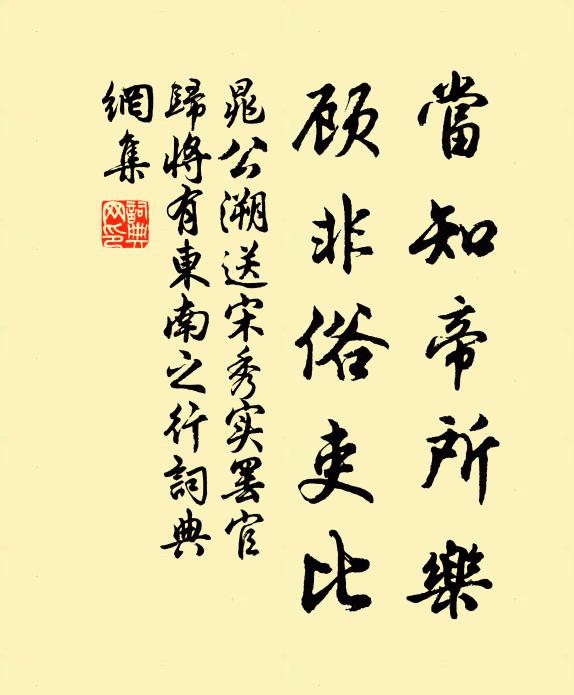 當知帝所樂
顧非俗吏比
晁公溯送宋秀实罢官
歸將有東南之行詞典
網集
詞典
网印